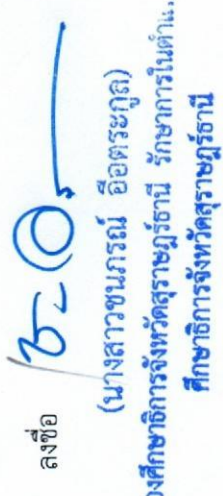 ลงชื่อ
(นางสาวชนภรณ์ อือตระกูล)
องศึกษาธิการจังหวัดสุราษฎร์ธานี รักษาการในตำแ
ศึกษาธิการจังหวัดสุราษฎร์ธานี